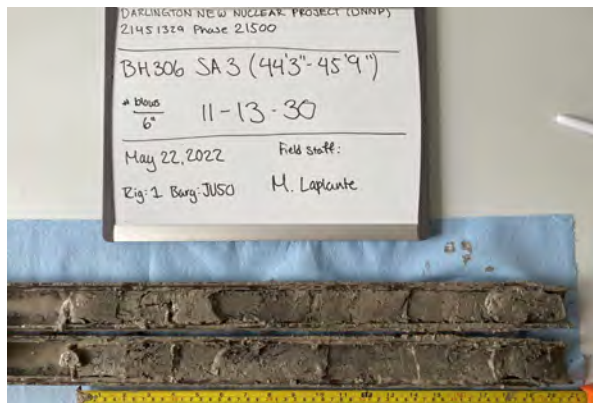 DARLINGTON NEW NUCLEAR PROJECT (DNNP)
21451329 Phase 21500
BH306 SA3 (44'3"-45'9")
# blows
6"
11-13-30
May 22, 2022
Field staff:
Rig: 1 Barg: JU50
M. Laplante